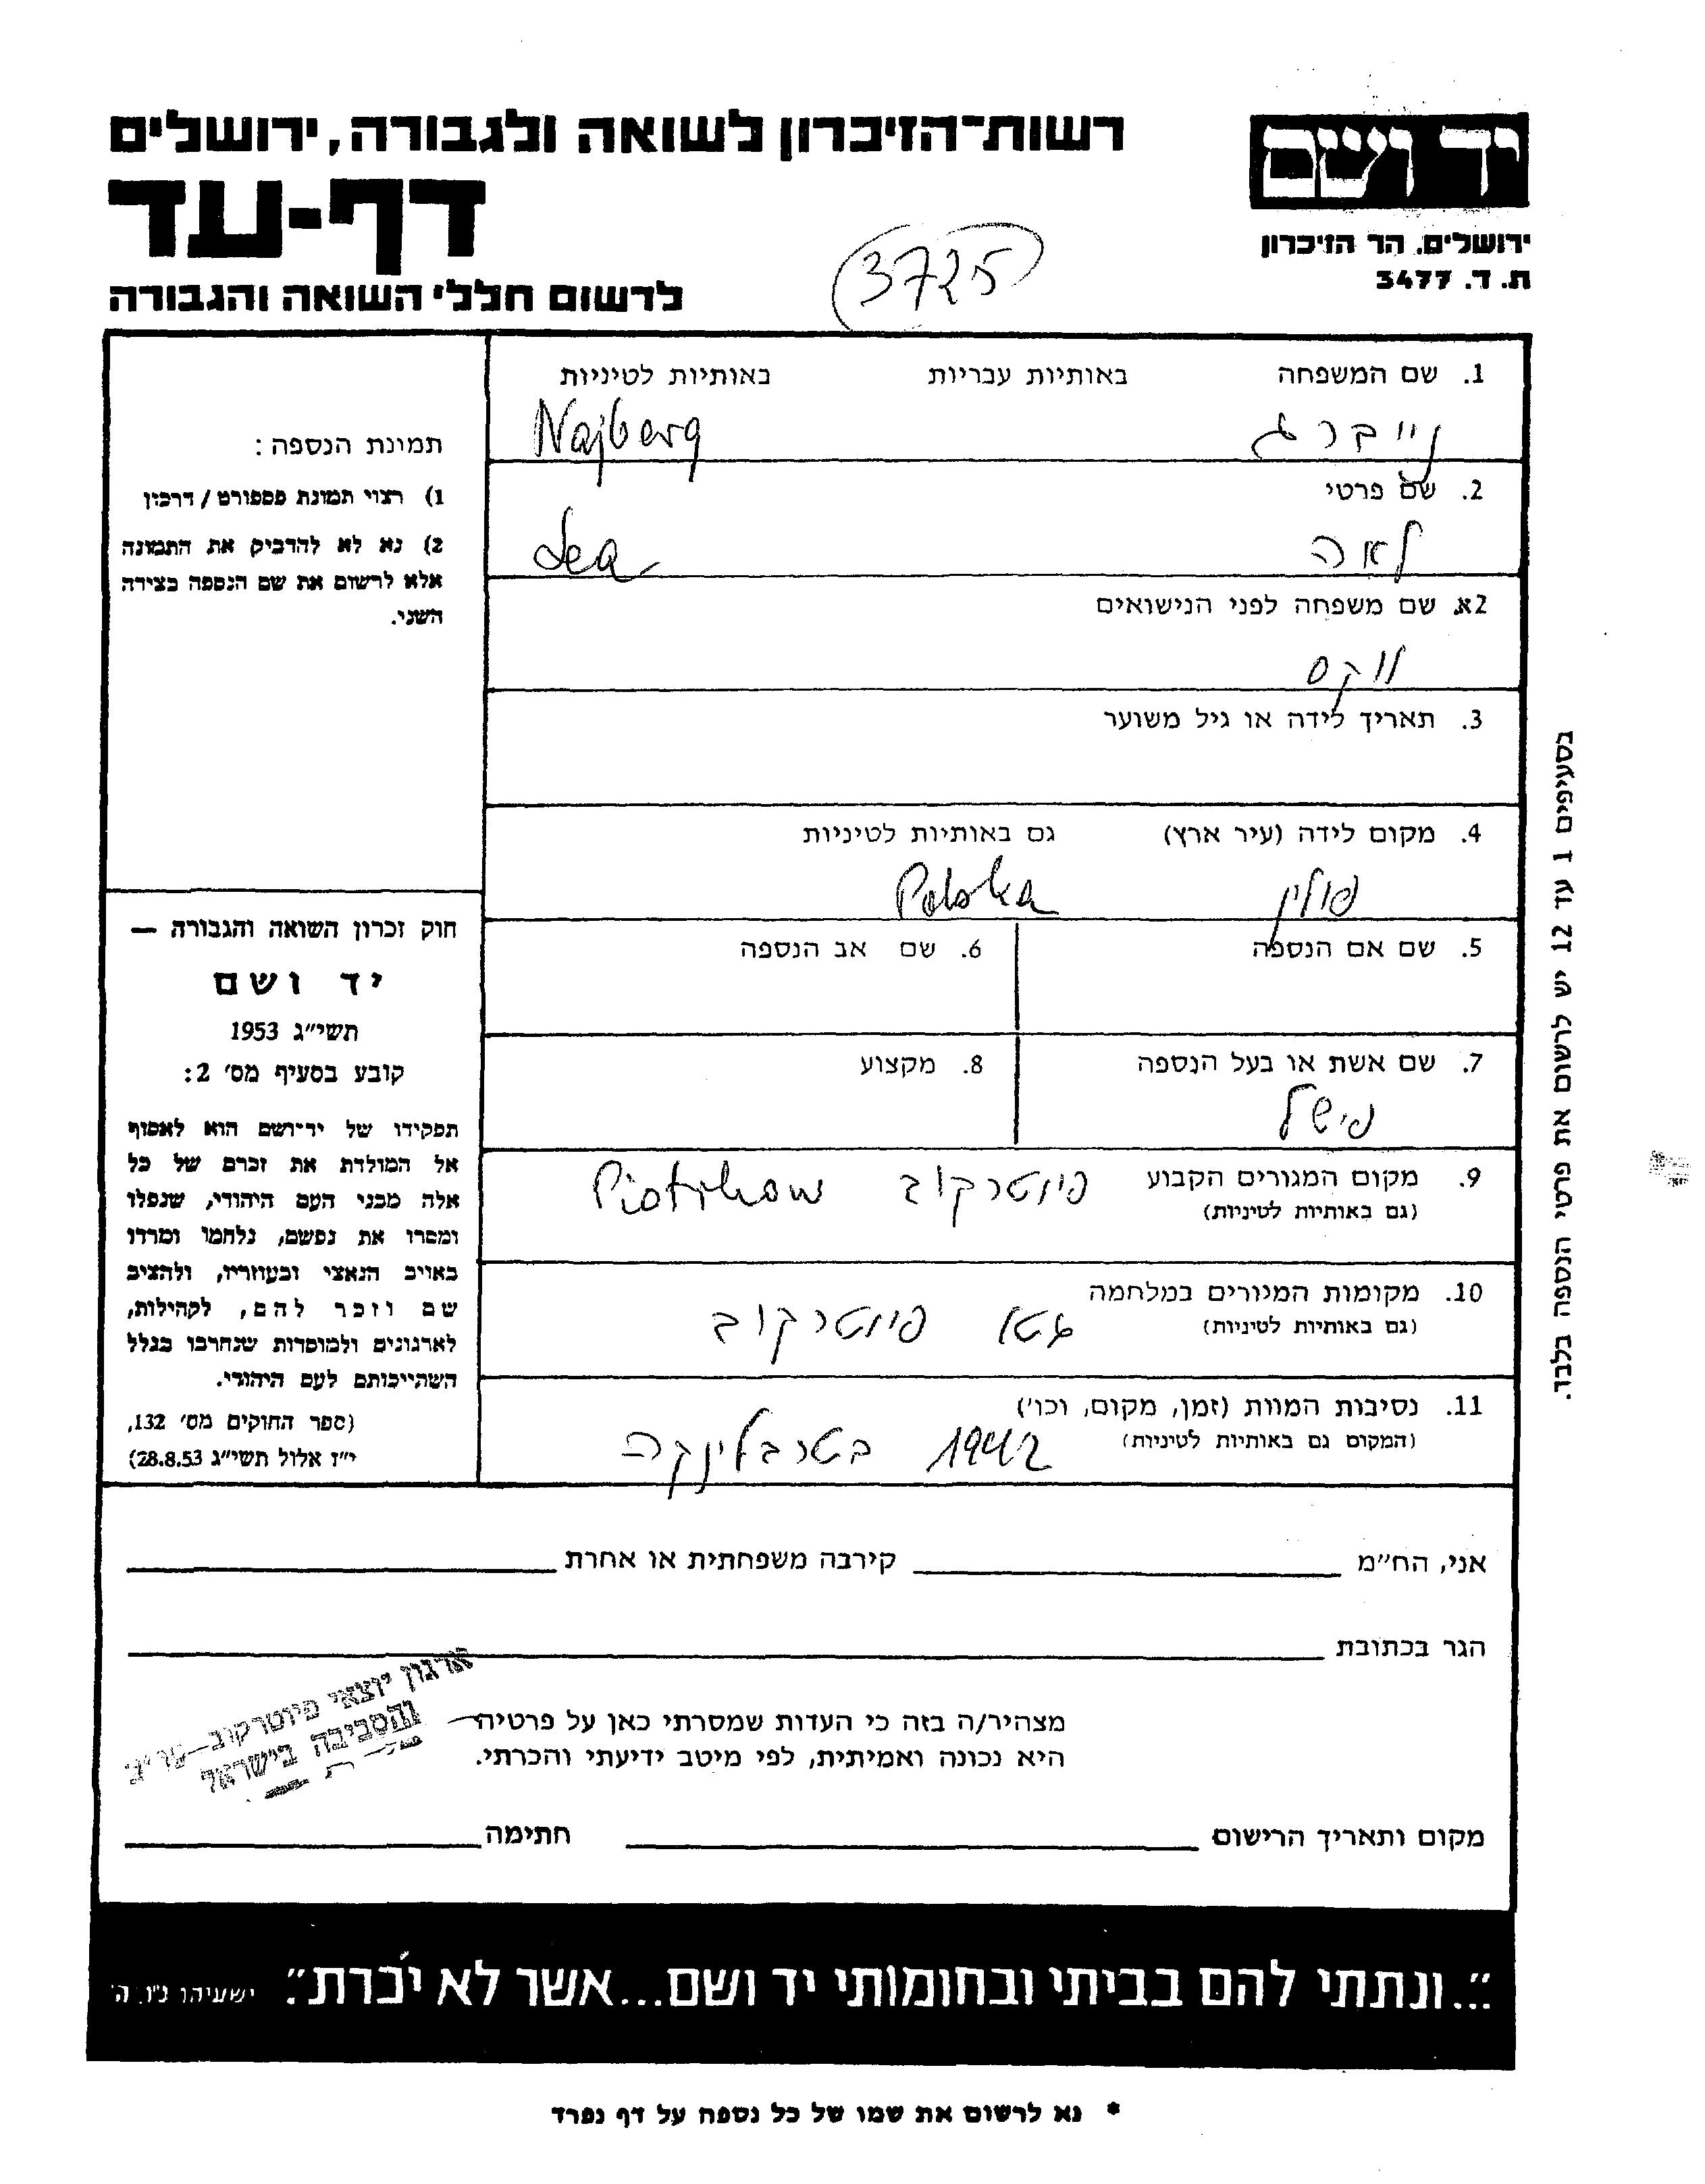 יד ושם
ירושלים. הר הזיכרון
ת.ד. 3477
רשות־הזיכרון לשואה ולגבורה, ירושלים
דף-עד
לרשום חללי השואה והגבורה
3725
1. שם המשפחה באותיות עבריות באותיות לטיניות
נייברג Najberg
2. שם פרטי
לאה Lea
2א. שם משפחה לפני הנישואים
ווקס
3. תאריך לידה או גיל משוער
4. מקום לידה (עיר ארץ) גם באותיות לטיניות
פולין Polska
5. שם אם הנספה 6. שם אב הנספה
7. שם אשת או בעל הנספה 8. מקצוע
פישל
9. מקום המגורים הקבוע פיוטרקוב Piotrkow
(גם באותיות לטיניות)
10. מקומות המגורים במלחמה
(גם באותיות לטיניות) גטו פיוטרקוב
11. נסיבות המוות (זמן, מקום, וכו')
(המקום גם באותיות לטיניות) 1942 בטרבלינקה
תמונת הנספה:
1) רצוי תמונת פספורט / דרכון
2) נא לא להדביק את התמונה
אלא לרשום את שם הנספה בצידה
השני.
חוק זכרון השואה והגבורה —
יד ושם
תשי״ג 1953
קובע בסעיף מס' 2:
תפקידו של יד־ושם הוא לאסוף
אל המולדת את זכרם של כל
אלה מבני העם היהודי, שנפלו
ומסרו את נפשם, נלחמו ומרדו
באויב הנאצי ובעוזריו, ולהציב
שם וזכר להם, לקהילות,
לארגונים ולמוסדות שנחרבו בגלל
השתייכותם לעם היהודי.
(ספר החוקים מס' 132,
י״ז אלול תשי״ג 28.8.53)
בסעיפים 1 עד 12 יש לרשום את פרטי הנספה בלבד.
אני, הח״מ קירבה משפחתית או אחרת
הגר בכתובת
ארגון יוצאי פיוטרקוב—
והסביבה בישראל
מצהיר/ה בזה כי העדות שמסרתי כאן על פרטיה
היא נכונה ואמיתית, לפי מיטב ידיעתי והכרתי.
מקום ותאריך הרישום חתימה
״...ונתתי להם בביתי ובחומותי יד ושם...אשר לא יכרת״. ישעיהו נ״ו, ה'
* נא לרשום את שמו של כל נספה על דף נפרד